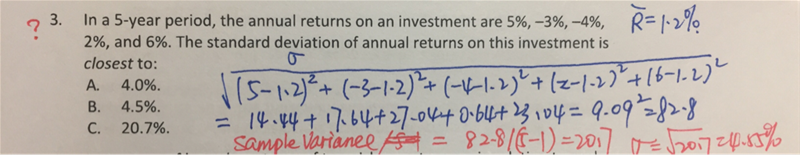 ? 3. In a 5-year period, the annual returns on an investment are 5%, –3%, –4%, R̄=1.2%
2%, and 6%. The standard deviation of annual returns on this investment is
closest to: σ
A. 4.0%. √(5-1.2)²+(-3-1.2)²+(-4-1.2)²+(2-1.2)²+(6-1.2)²
B. 4.5%. = 14.44+17.64+27.04+0.64+23.04 = 9.09²=82.8
C. 20.7%. Sample Variance = 82.8/(5-1)=20.7 σ=√20.7=4.55%